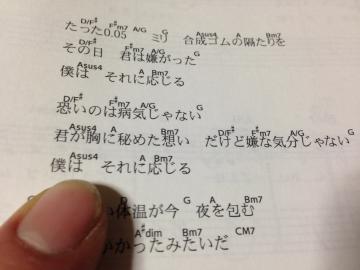 D/F# F#m7 A/G G Asus4 A Bm7
たった0.05 ミリ 合成ゴムの隔たりを
D/F# F#m7 A/G G
その日 君は嫌がった
Asus4 A Bm7
僕は それに応じる
D/F# F#m7 A/G G
恐いのは病気じゃない
Asus4 A Bm7 D/F# F#m7 A/G G
君が胸に秘めた想い だけど嫌な気分じゃない
Asus4 A Bm7
僕は それに応じる
D G A Bm7
い体温が今 夜を包む
A#dim Bm7 CM7
かったみたいだ